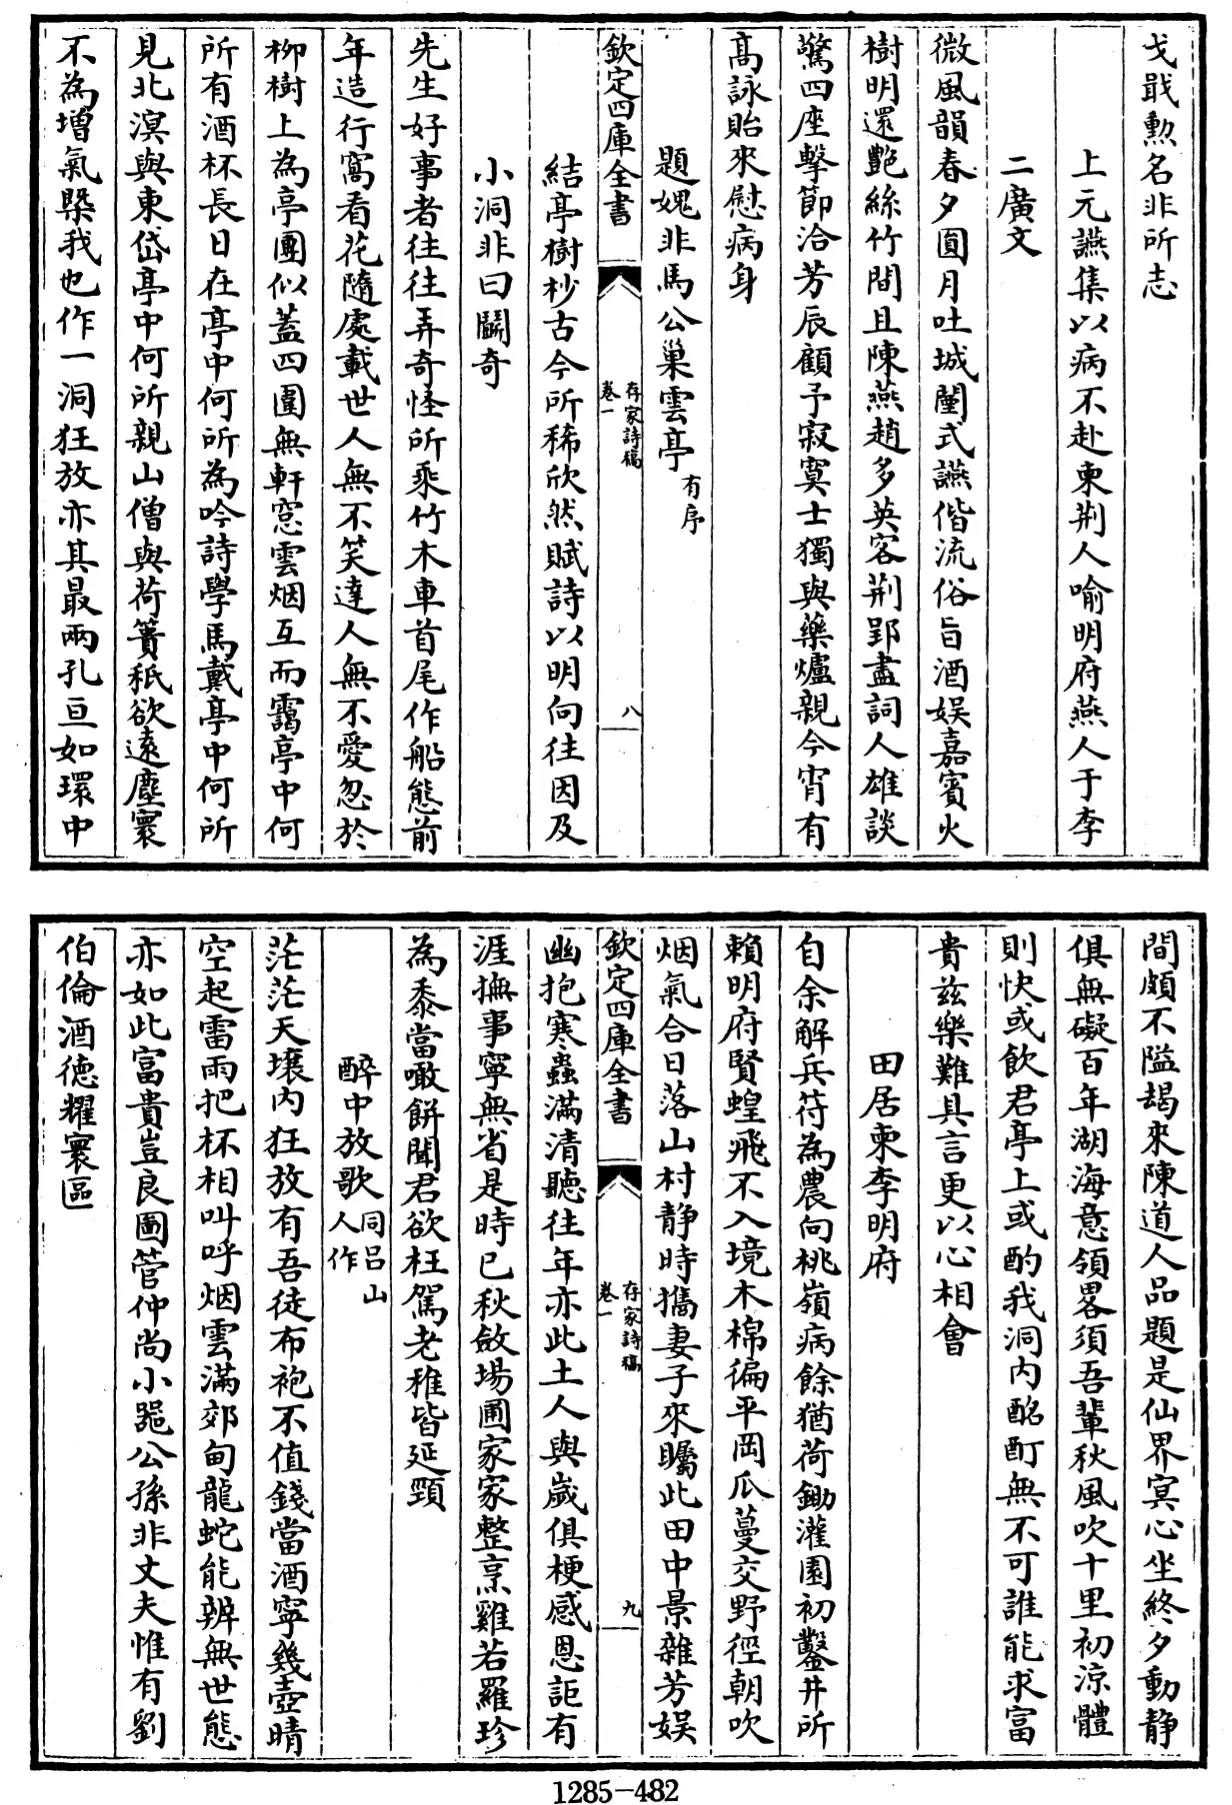 戈戢勲名非所志
上元讌集以病不赴柬荆人喻明府燕人于李
二廣文
微風韻春夕圓月吐城闉式讌偕流俗旨酒娱嘉賓火
樹明還艶絲竹間且陳燕趙多英客荆郢盡詞人雄談
驚四座擊節洽芳辰顧予寂寞士獨與藥爐親今宵有
髙詠貽來慰病身
題媿非馬公巢雲亭有序
欽定四庫全書
存家詩稿
卷一
八
結亭樹杪古今所稀欣然賦詩以明向往因及
小洞非曰鬭奇
先生好事者往往弄奇怪所乘竹木車首尾作船態前
年造行窩看花隨處載世人無不笑達人無不愛忽於
柳樹上為亭團似蓋四圍無軒窓雲烟互而靄亭中何
所有酒杯長日在亭中何所為吟詩學馬戴亭中何所
見北溟與東岱亭中何所親山僧與荷蕢秖欲逺塵寰
不為增氣槩我也作一洞狂放亦其最兩孔亘如環中
間頗不隘朅來陳道人品題是仙界冥心坐終夕動静
俱無礙百年湖海意領畧須吾輩秋風吹十里初涼體
則快或飲君亭上或酌我洞内酩酊無不可誰能求富
貴兹樂難具言更以心相會
田居柬李明府
自余解兵符為農向桃嶺病餘猶荷鋤灌園初鑿井所
賴明府賢蝗飛不入境木棉徧平岡瓜蔓交野徑朝吹
烟氣合日落山村静時攜妻子來矚此田中景雜芳娱
欽定四庫全書
存家詩稿
卷一
九
幽抱寒蟲滿清聽往年亦此土人與嵗俱梗感恩詎有
涯撫事寧無省是時已秋斂場圃家家整烹雞若羅珍
為黍當噉餅聞君欲枉駕老稚皆延頸
醉中放歌同吕山
人作
茫茫天壤内狂放有吾徒布袍不值錢當酒寧幾壺晴
空起雷雨把杯相叫呼烟雲滿郊甸龍蛇能辨無世態
亦如此富貴豈良圖管仲尚小噐公孫非丈夫惟有劉
伯倫酒徳耀寰區
1285-482